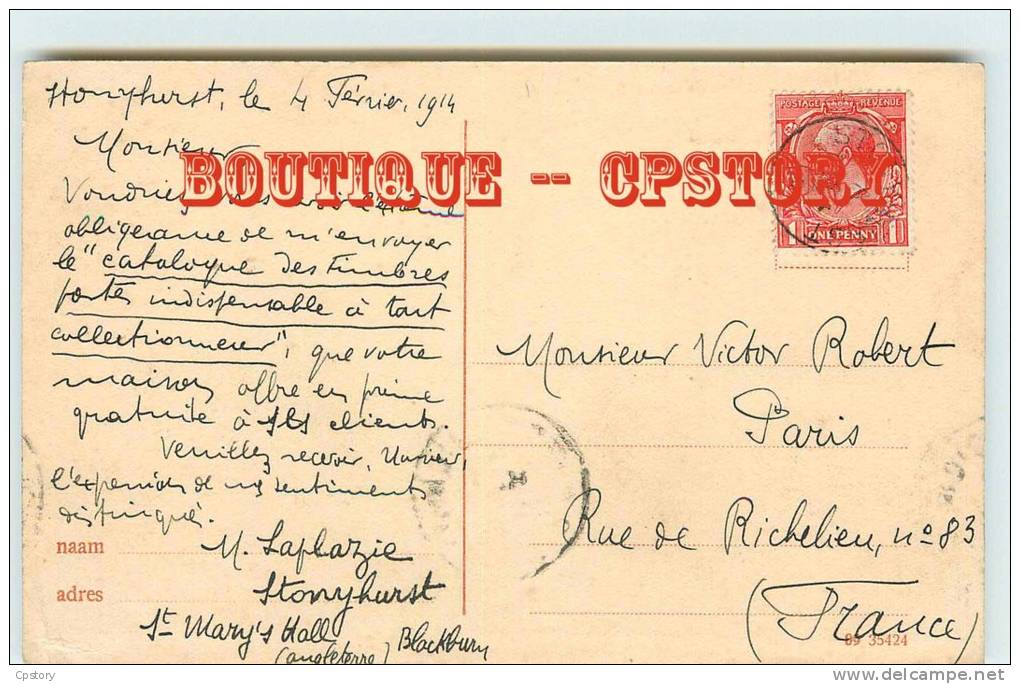 Stonyhurst, le 4 Février, 1914
Monsieur
BOUTIQUE -- CPSTORY
Voudriez
obligeance de m'envoyer
le "catalogue des timbres
postes indispensable à tout
collectionneur", que votre
maison offre en prime
gratuite à ses clients.
Veuillez recevoir, Monsieur,
l'expression de mes sentiments
distingués.
naam
M. Laplazie
adres
Stonyhurst
St Mary's Hall
Blackburn
(angleterre)
POSTAGE REVENUE
1 ONE PENNY 1
Monsieur Victor Robert
Paris
Rue de Richelieu, no 83
(France)
89 35424
Cpstory
delcampe.net